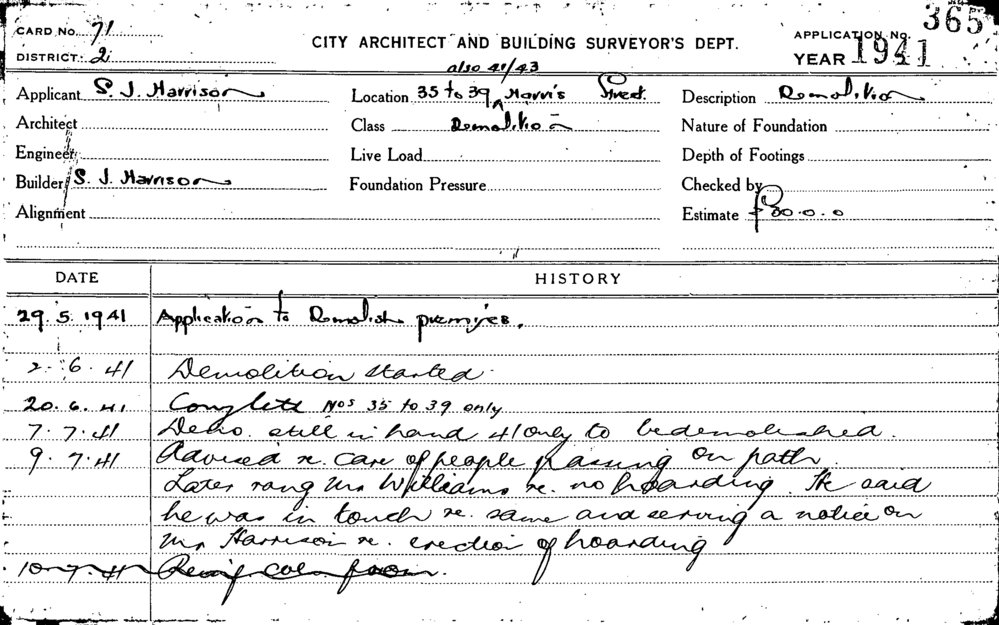 365
CARD No. 71
CITY ARCHITECT AND BUILDING SURVEYOR'S DEPT.
APPLICATION No.
DISTRICT: 2
YEAR 1941
also 41/43
Applicant S. J. Harrison
Location 35 to 39 Harris Street.
Description Demolition
Architect
Class Demolition
Nature of Foundation
Engineer
Live Load
Depth of Footings
Builder S. J. Harrison
Foundation Pressure
Checked by
Alignment
Estimate
DATE HISTORY
29.5.1941 Application to Demolish premises.
2.6.41 Demolition started.
20.6.41 Complete Nos 35 to 39 only
7.7.41 Demo. still in hand 41 only to be demolished.
9.7.41 Advised re. care of people passing on path
Later rang Mr Williams re. no hoarding. He said
he was in touch re. same and serving a notice on
Mr Harrison re. erection of hoarding
10.7.41